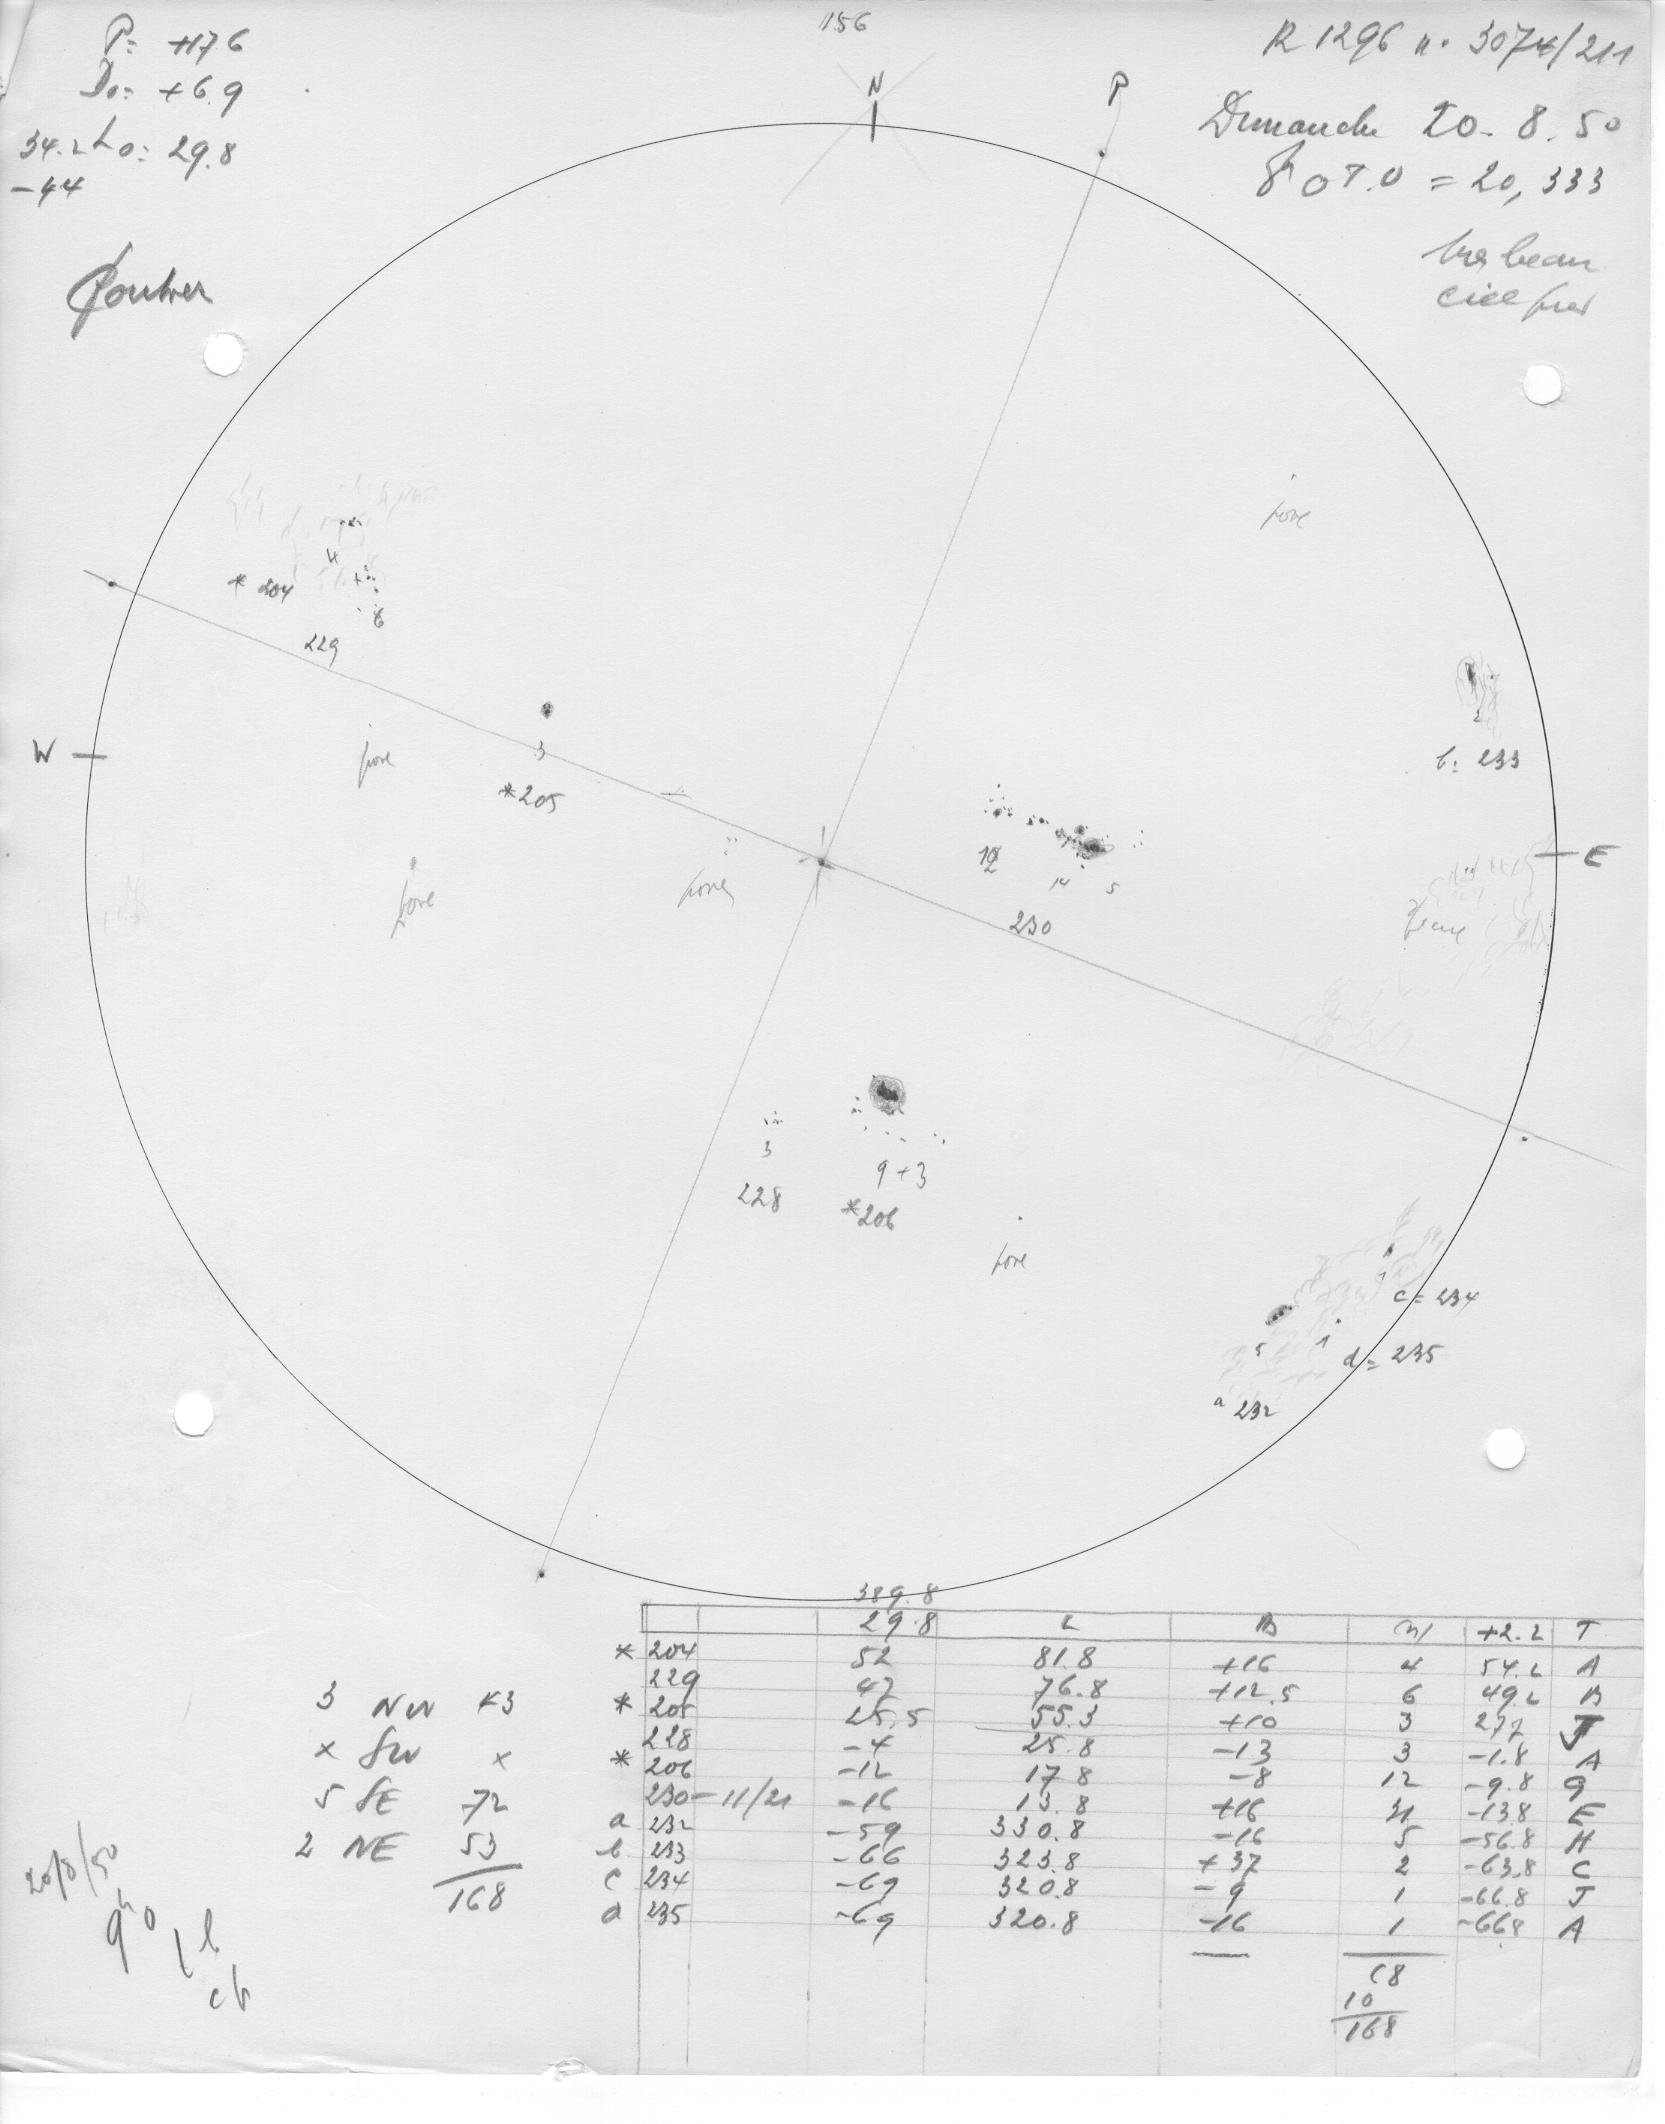 P= +17.6
Do= +6.9
34.2 Lo= 29.8
-44
1156
R 1296 n. 3074/211
Dimanche 20. 8. 50
8h 0 T.U = 20,333
tres beau
ciel pur
N
P
pore
* 204
4
6
229
W
pore
3
*205
b: 233
2
E
pore
pores
12
14
5
230
3
228
9+3
*206
pore
1
c= 234
5
1
d= 235
a 232
389.8
29.8 L B n +2.2 T
* 204 52 81.8 +16 4 54.2 A
229 47 76.8 +12.5 6 49.2 B
* 205 25.5 55.3 +10 3 27.7 J
228 -4 25.8 -13 3 -1.8 A
* 206 -12 17.8 -8 12 -9.8 G
230-11/21 -16 13.8 +16 31 -13.8 E
a 232 -59 330.8 -16 5 -56.8 H
b 233 -66 323.8 +37 2 -63.8 C
c 234 -69 320.8 -9 1 -66.8 J
d 235 -69 320.8 -16 1 -66.8 A
68
10
168
3 NW 43
x SW x
5 SE 72
2 NE 53
168
20/8/50